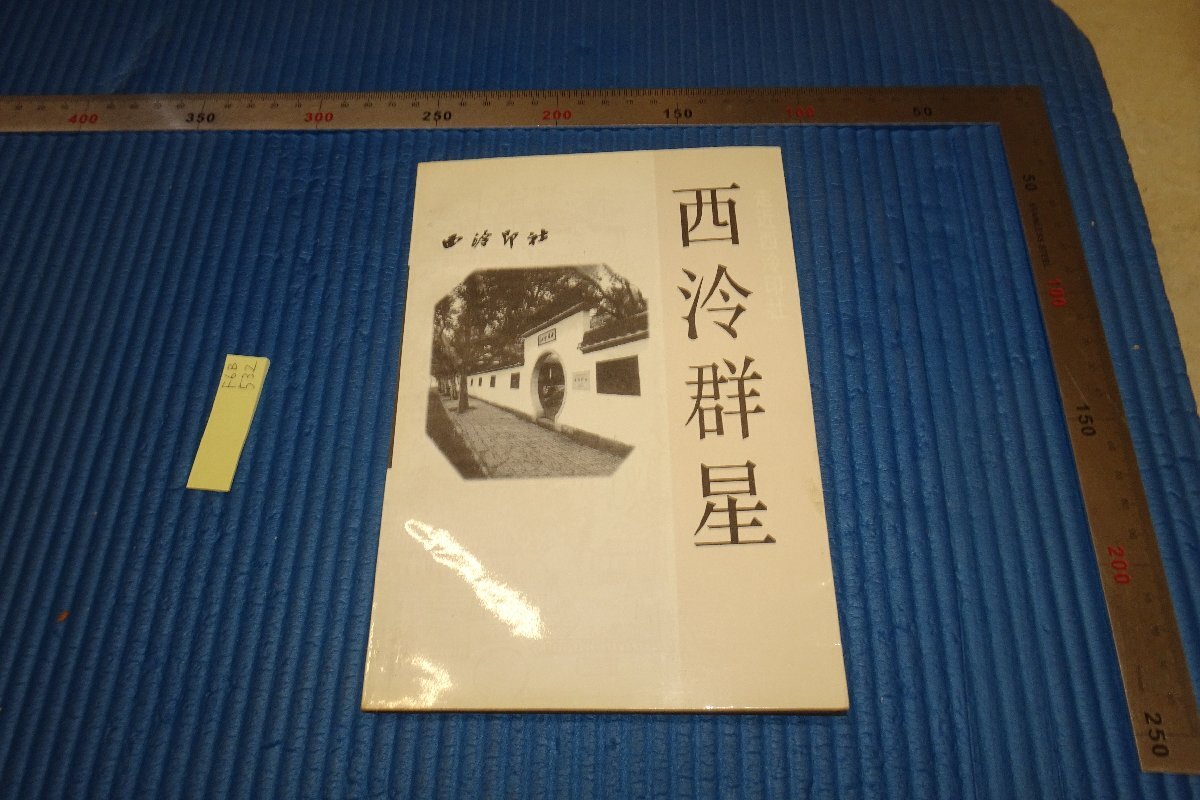 西泠群星
西泠印社
F6B
532
400 350 300 250 200 150 100 50
50
100
150
200
250